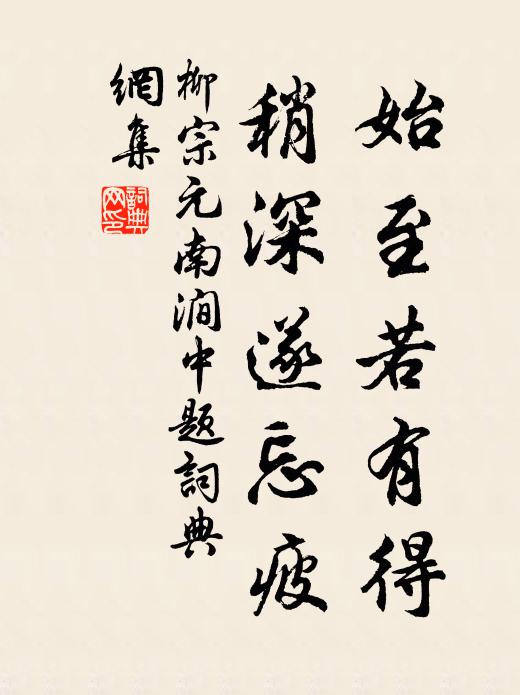 始至若有得
稍深遂忘疲
柳宗元南澗中題詞典
網集
詞典網印